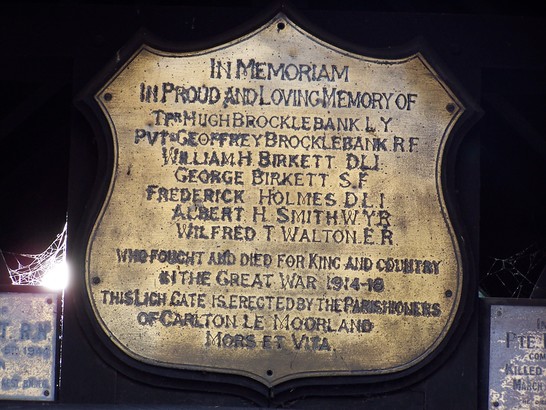 IN MEMORIAM
IN PROUD AND LOVING MEMORY OF
TPR HUGH BROCKLEBANK. L.Y.
PVTE GEOFFREY BROCKLEBANK. R.F.
WILLIAM H. BIRKETT. D.L.I.
GEORGE BIRKETT. S.F.
FREDERICK HOLMES D.L.I.
ALBERT H. SMITH W.Y.R.
WILFRED T. WALTON. E.R.
WHO FOUGHT AND DIED FOR KING AND COUNTRY
IN THE GREAT WAR 1914-18
THIS LICH GATE IS ERECTED BY THE PARISHIONERS
OF CARLTON LE MOORLAND
MORS ET VITA.
PTE
KILLED
MARCH